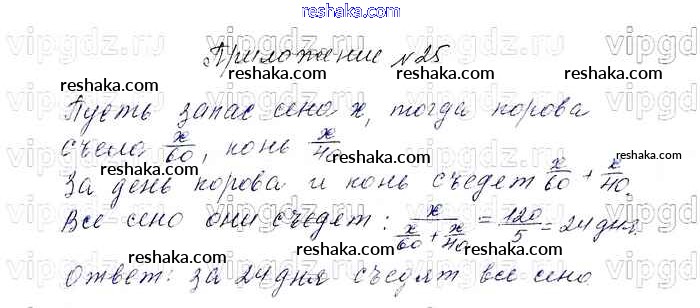 reshaka.com
Приложение №25
reshaka.com reshaka.com reshaka.com
Пусть запас сена x, тогда корова
съела x/60, конь x/40
reshaka.com reshaka.com reshaka.com
За день корова и конь съедят x/60 + x/40.
Все сено они съедят: x/(x/60 + x/40) = 120/5 = 24 дня.
reshaka.com reshaka.com reshaka.com
Ответ: за 24 дня съедят все сено